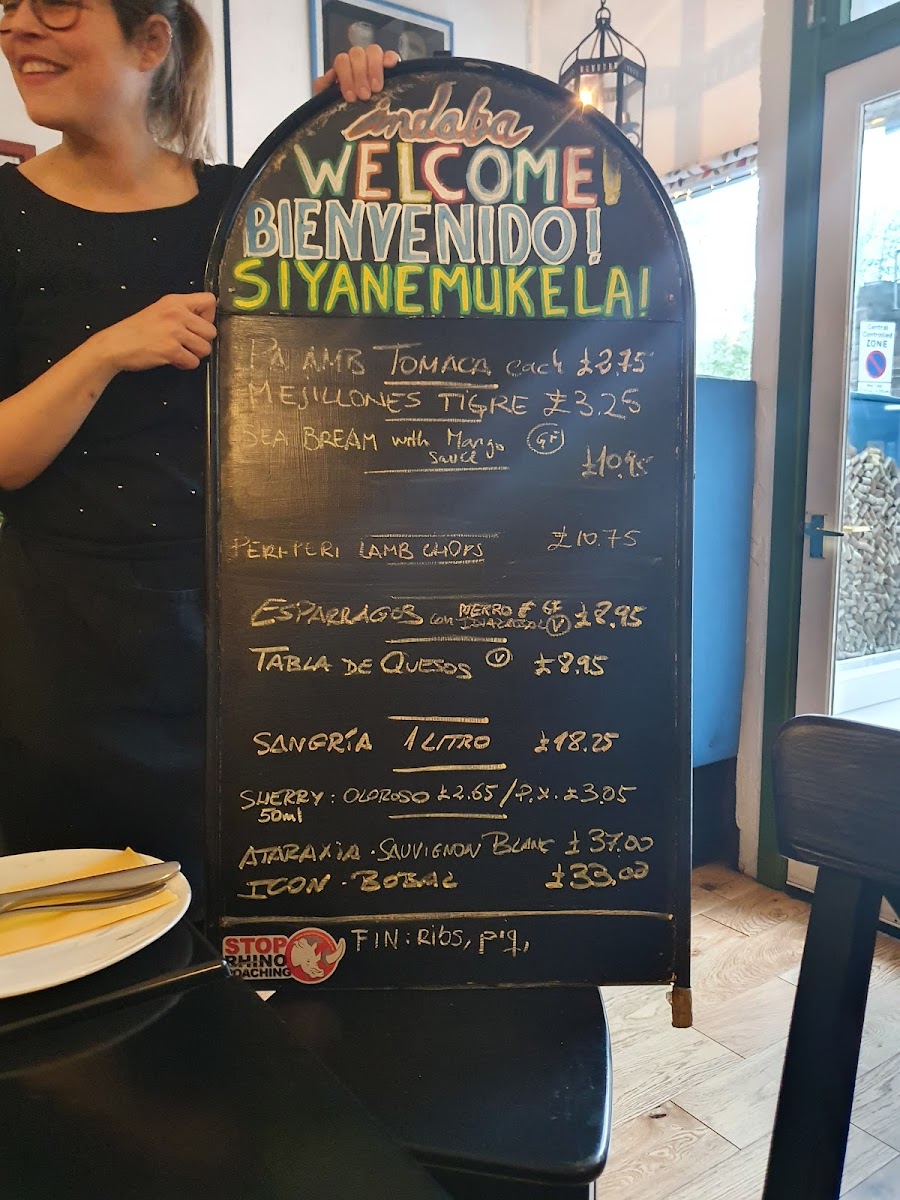 indaba
WELCOME!
BIENVENIDO!
SIYANEMUKELA!
PA AMB TOMACA each £2.75
MEJILLONES TIGRE £3.25
SEA BREAM with Mango GF
sauce £10.95
PERI-PERI LAMB CHOPS £10.75
ESPARRAGOS con £8.95
V
TABLA DE QUESOS V £8.95
SANGRÍA 1 LITRO £18.25
SHERRY: OLOROSO £2.65/P.X. £3.05
50ml
ATARAXIA · SAUVIGNON BLANC £37.00
ICON · BOBAL £33.00
STOP
RHINO
POACHING
FIN: RIBS, pig,
Central
Controlled
ZONE